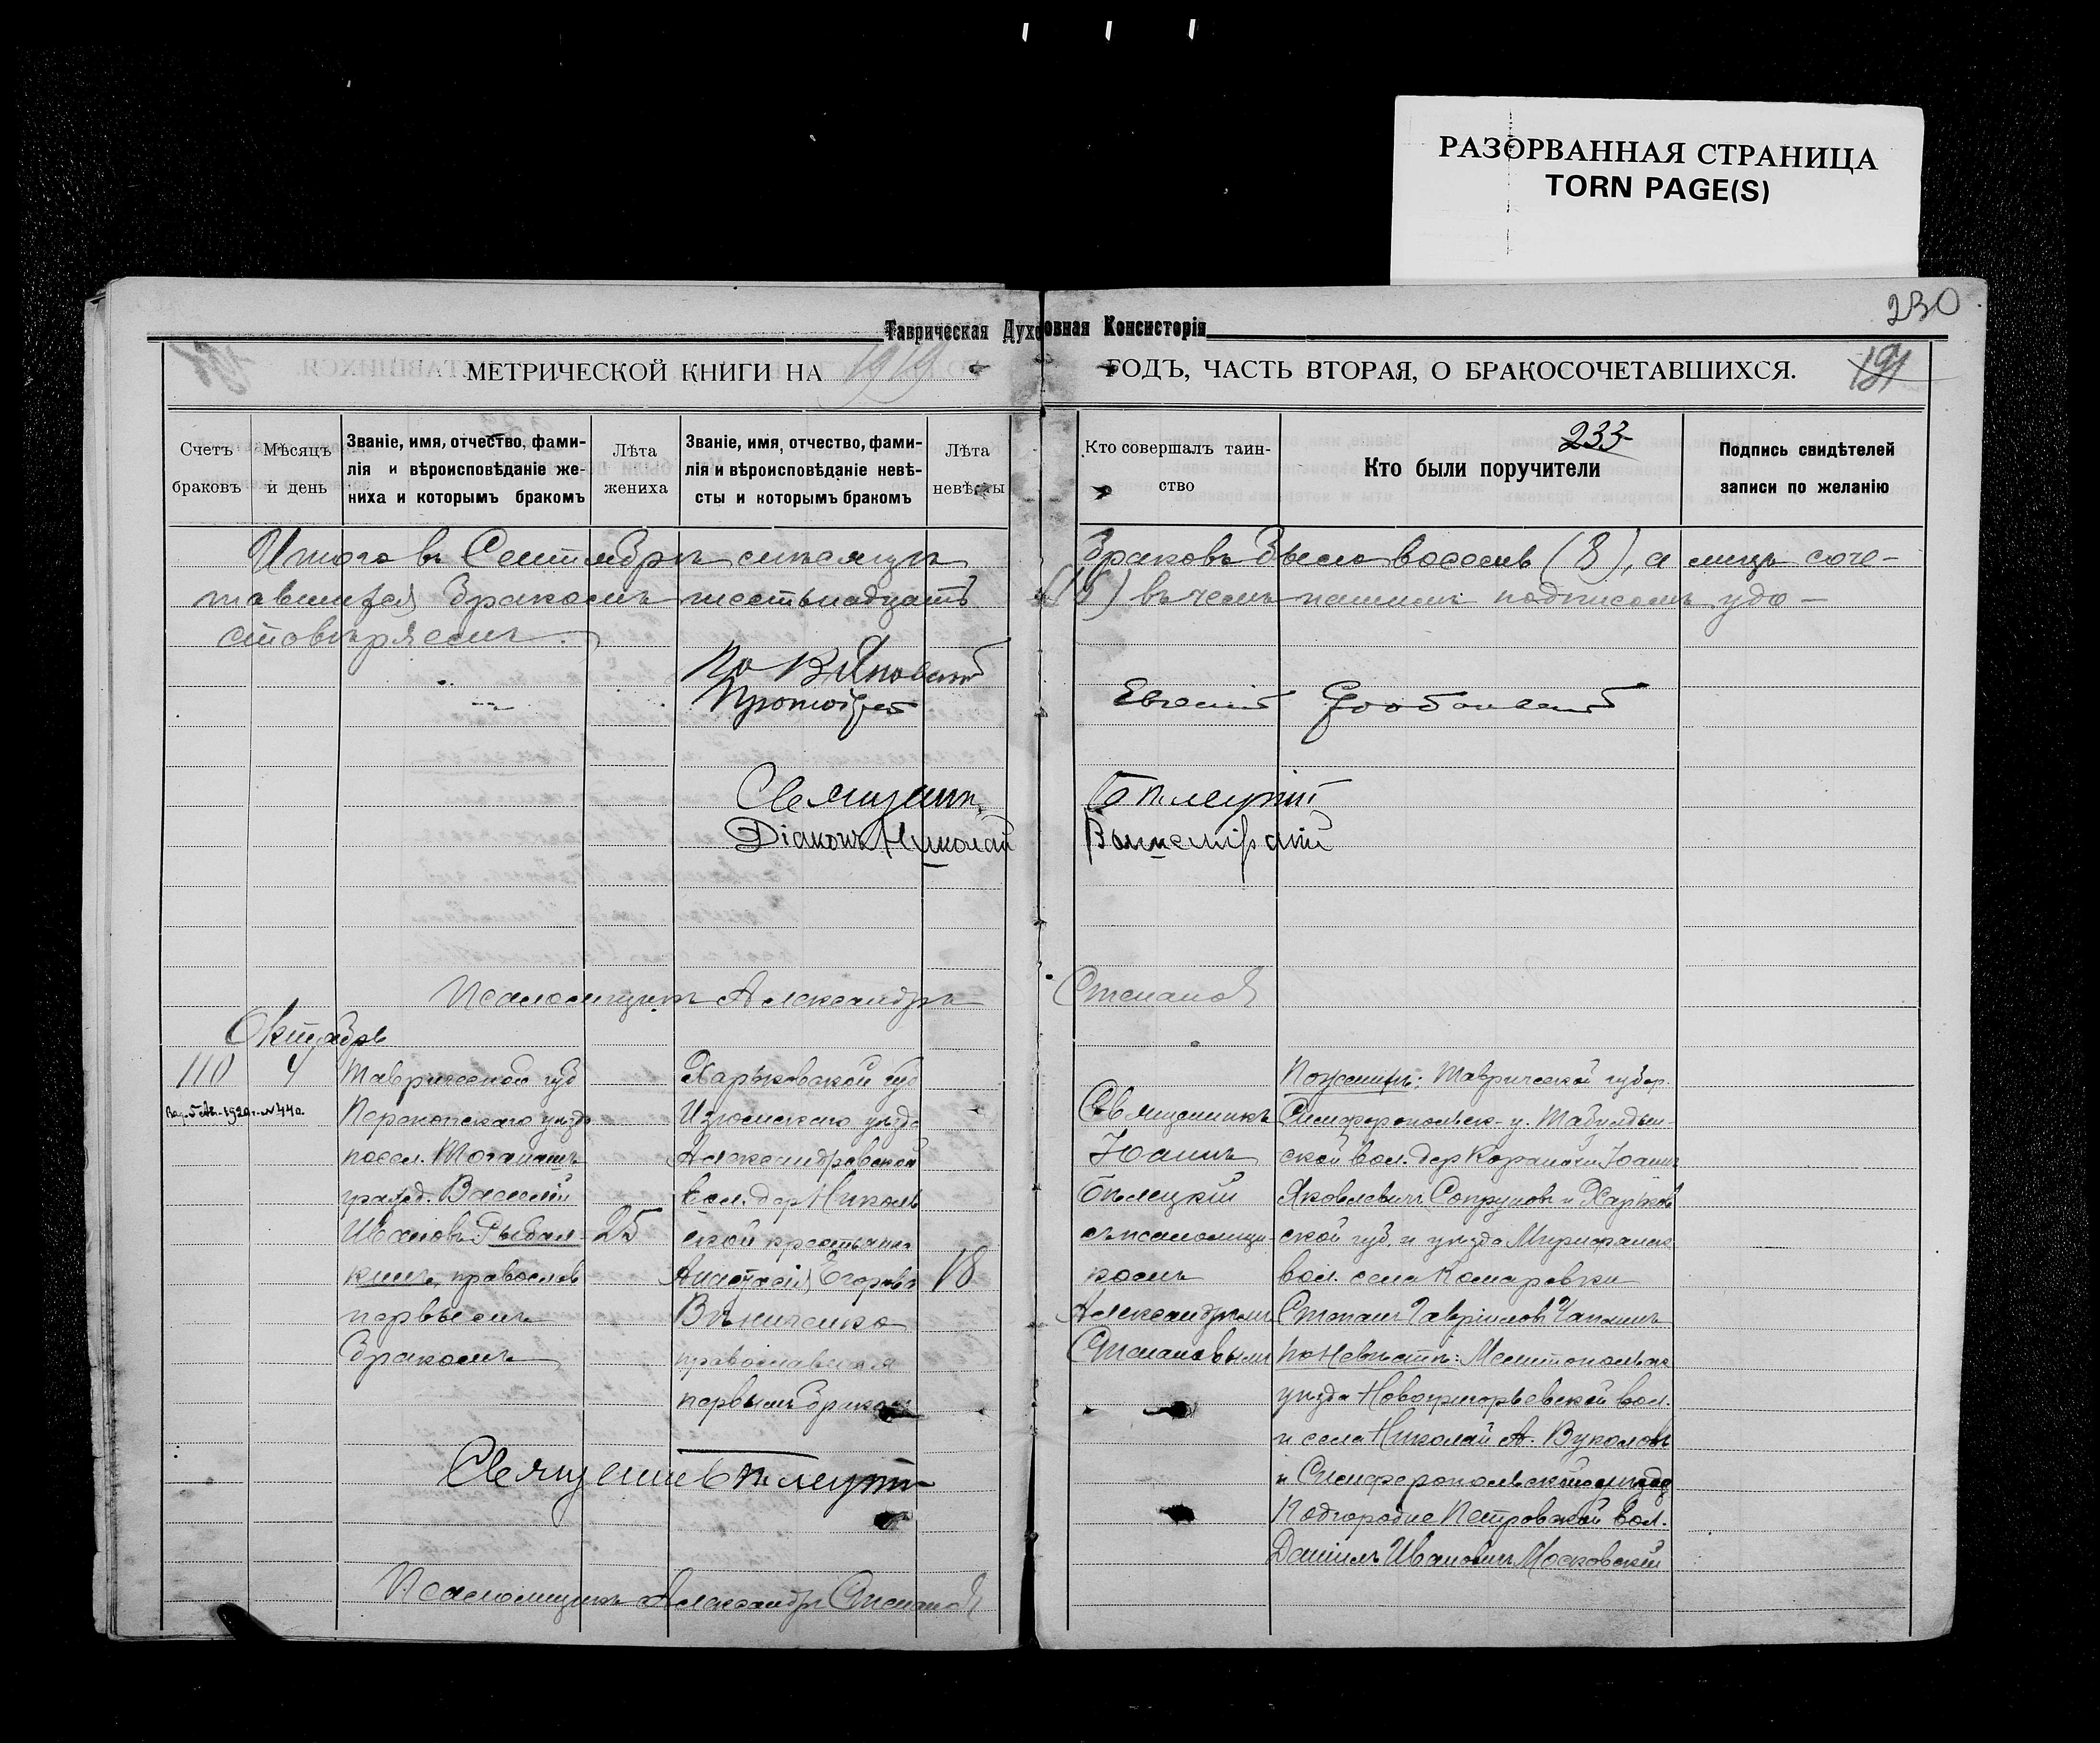 РАЗОРВАННАЯ СТРАНИЦА
TORN PAGE(S)
230
Таврическая Духовная Консисторія
МЕТРИЧЕСКОЙ КНИГИ НА 1919 ГОДЪ, ЧАСТЬ ВТОРАЯ, О БРАКОСОЧЕТАВШИХСЯ.
191
Счетъ браковъ
Мѣсяцъ и день
Званіе, имя, отчество, фами-
лія и вѣроисповѣданіе же-
ниха и которымъ бракомъ
Лѣта жениха
Званіе, имя, отчество, фами-
лія и вѣроисповѣданіе невѣ-
сты и которымъ бракомъ
Лѣта невѣсты
Кто совершалъ таин-
ство
233
Кто были поручители
Подпись свидѣтелей
записи по желанію
Итого въ Сентябрѣ мѣсяцѣ браковъ было восемь (8), а лицъ соче-
тавшихся бракомъ шестьнадцать (16) въ чемъ нашимъ подписомъ удо-
стовѣряемъ.
Протоіерей Евгеній
Священник Бѣлецкій
Діаконъ Николай
Псаломщикъ Александръ Степановъ
Октябрь
110
4
Таврической губ
Перекопскаго уѣзда
посел. Юганашъ
гражд. Василій
Ивановъ Рыбал-
кинъ, православ
первымъ
бракомъ
25
Харьковской губ
Изюмскаго уѣзда
Александровской
вол. дер Николь
ской крестьянка
Анастасія Егорова
православная
первымъ бракомъ
18
Священникъ
Іоаннъ
Бѣлецкій
съ псаломщи-
комъ
Александромъ
Степановымъ
По женихѣ: Таврической губер.
Симферопольск. у. Табулдын-
ской вол. дер Іоаннъ
Яковлевичъ Сопруновъ и Харьков
ской губ. и уѣзда
вол. села Комаровки
Степанъ Гавріиловъ
по невѣстѣ: Мелитопольск
уѣзда Новогригорьевской вол.
и села Николай А. Вуколовъ
и Симферопольскаго уѣзда
Подгородне Петровской вол.
Даніилъ Ивановичъ Московскій
Священникъ Бѣлецкій
Псаломщикъ Александръ Степановъ